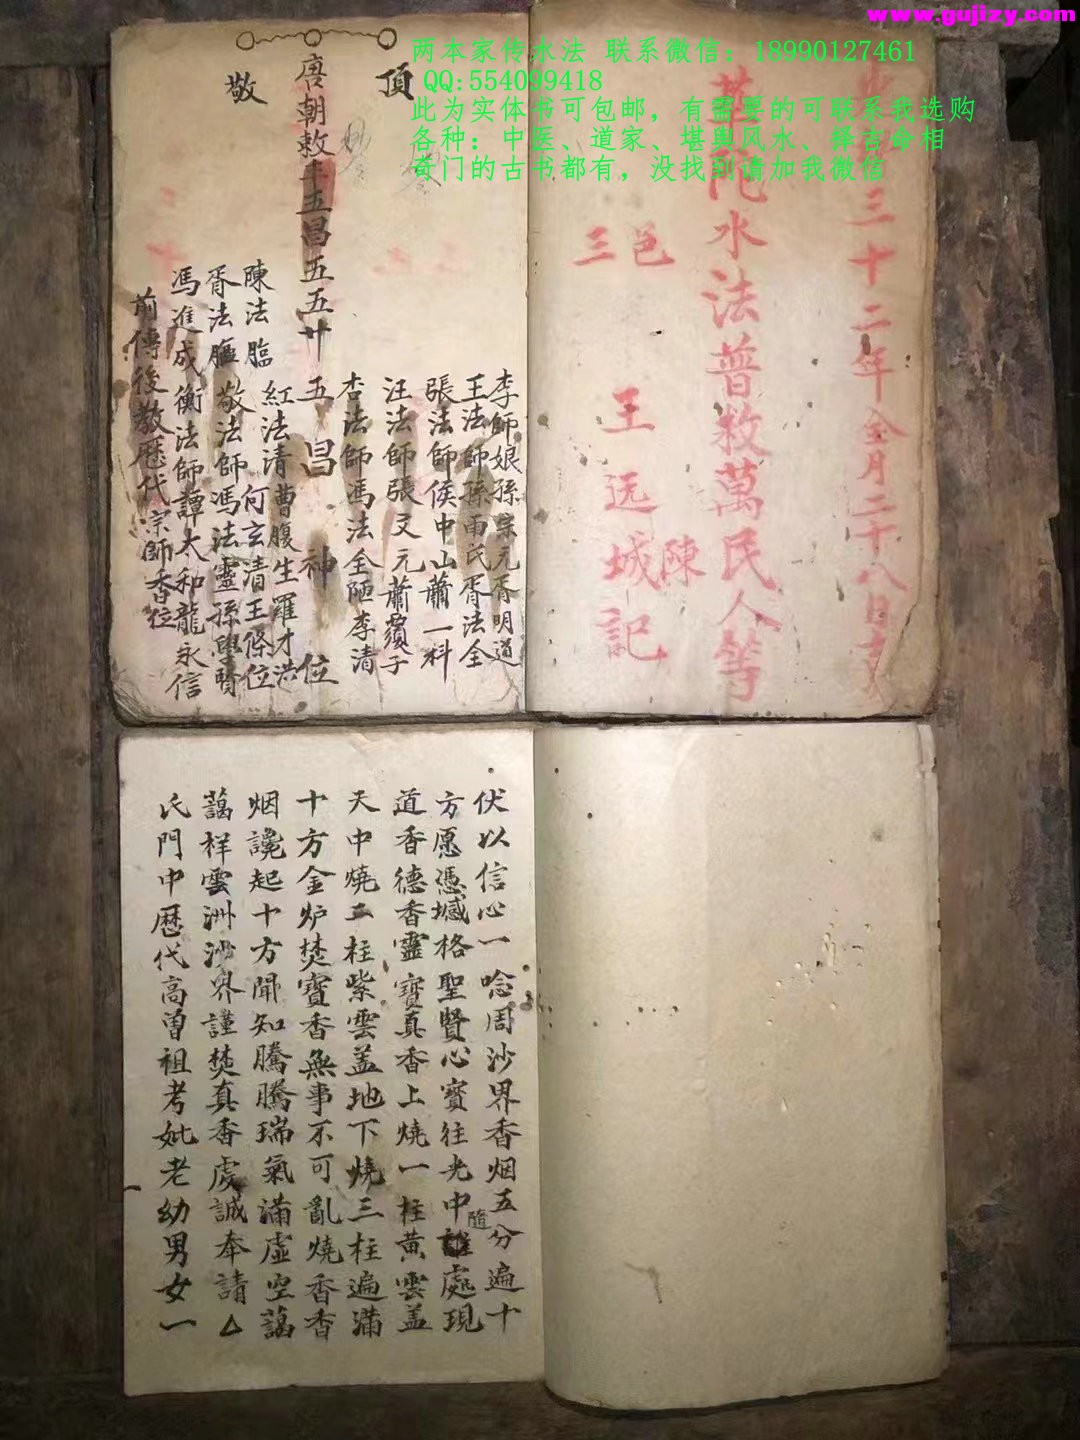 www.gujizy.com
两本家传水法 联系微信：18990127461
QQ:554099418
此为实体书可包邮，有需要的可联系我选购
各种：中医、道家、堪舆风水、择吉命相
奇门的古书都有，没找到请加我微信
三十二年全月二十八日
陀水法普救萬民人等
三邑
王远城記
陳
頂
敬
李師娘孫宗元胥明道
王法師孫雨氏胥法全
張法師侯中山蕭一科
汪法師張文元蕭
杏法師馮法全陋李清
唐朝敕年五昌五五廿五昌神位
紅法清曹腹生羅才洪
陳法臨何玄清王條位
胥法敬法師馮法靈孫賢
馮進成衡法師譚太和龍永信
前傳後教歷代宗師香位
伏以信心一唸周沙界香烟五分遍十
方愿憑撼格聖賢心寳往光中隨處現
道香德香靈寶真香上燒一柱黄雲盖
天中燒二柱紫雲盖地下燒三柱遍滿
十方金炉焚寶香無事不可亂燒香香
烟讒起十方聞知騰騰瑞氣滿虚空藹
藹祥雲洲沙界謹焚真香虔誠奉請△
氏門中歷代高曾祖考妣老幼男女一